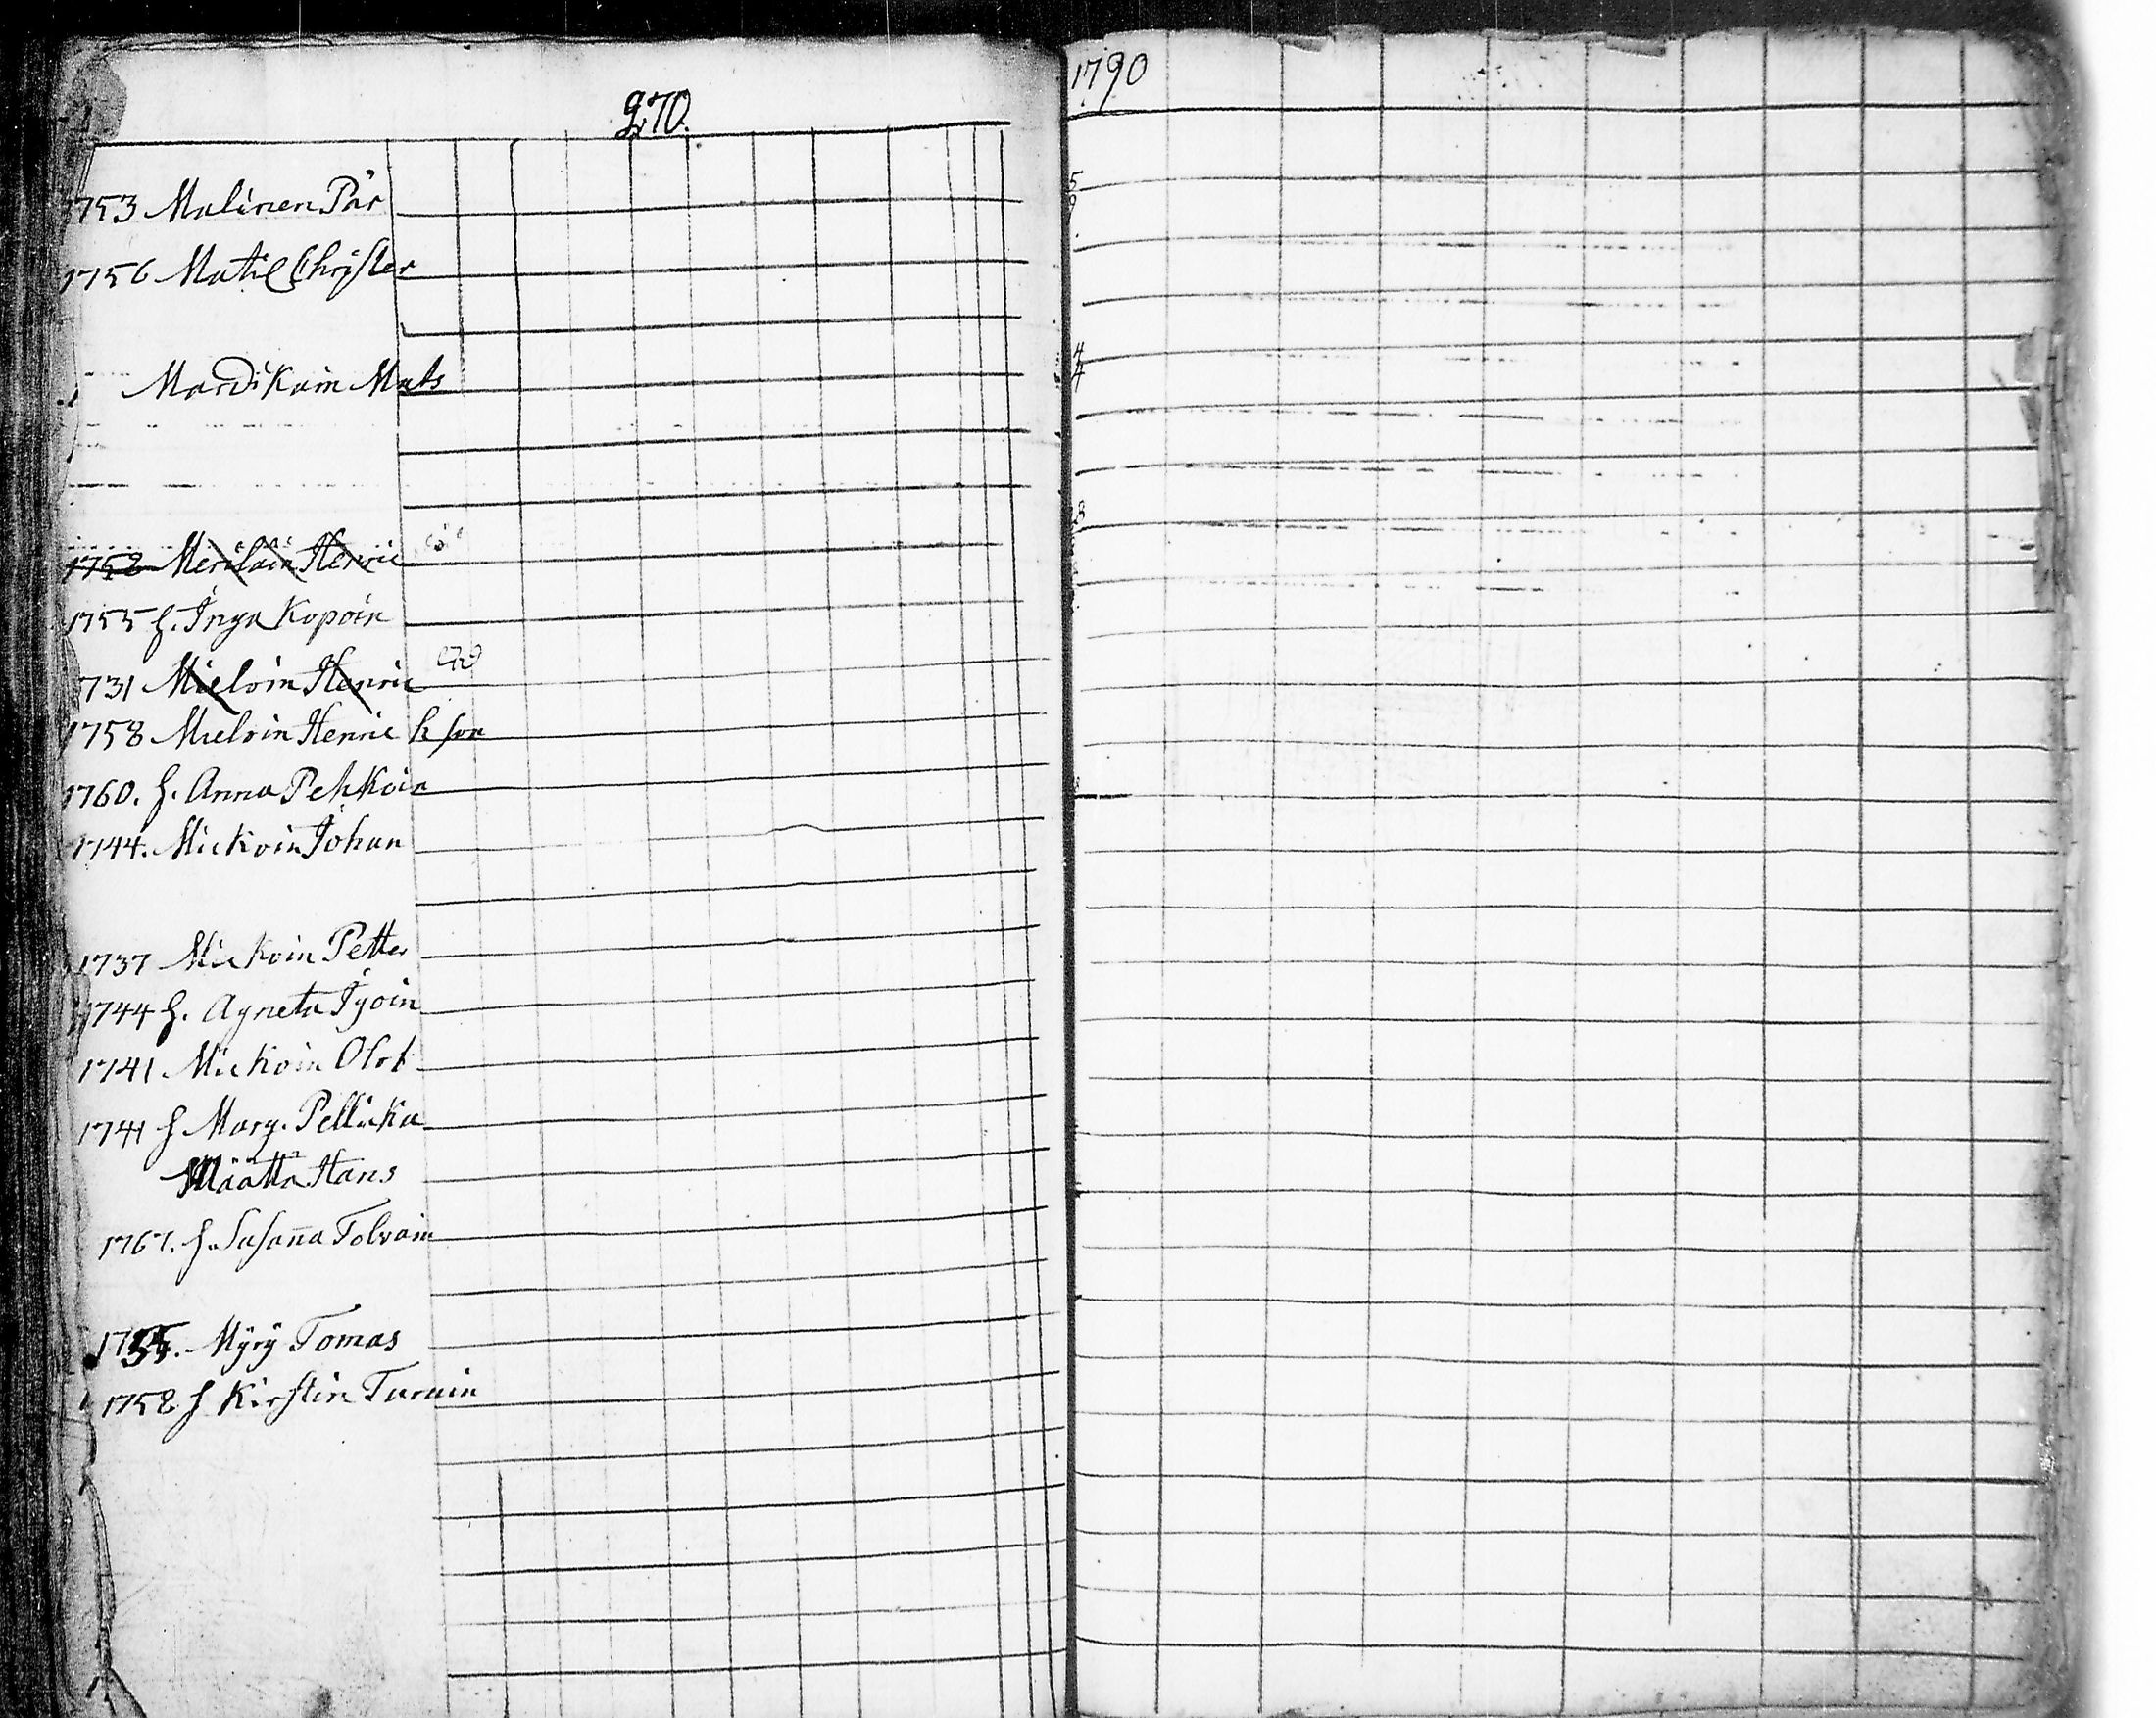 270.
1753 Malinen Pår
1756 Matil Christer
Mardikain Mats
1752 Meriläin Henric
1755 h. Inga Kopoin
1731 Mieloin Henric
1758 Mieloin Henric h son
1760. h. Anna Pehkoin
1744. Mickoin Johan
1737 Mickoin Petter
1744 h. Agneta Tjoin
1741 Mickoin Olof
1741 h Marg. Pellicka
Määttä Hans
1767. h. Susan̄a Tolvain
1755. Myry Tomas
1758 h Kirstin Turuin
1790
5
4
4